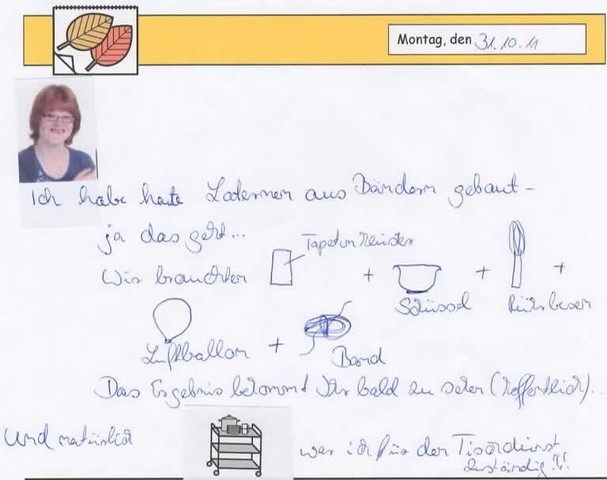 Montag, den 31.10.11
Ich habe heute Laternen aus Bändern gebaut -
ja das geht...
Tapetenkleister
Wir brauchten + + +
Schüssel Rührbesen
+
Luftballon Band
Das Ergebnis bekommt Ihr bald zu sehen (hoffentlich)...
und natürlich war ich für den Tischdienst
zuständig!!!